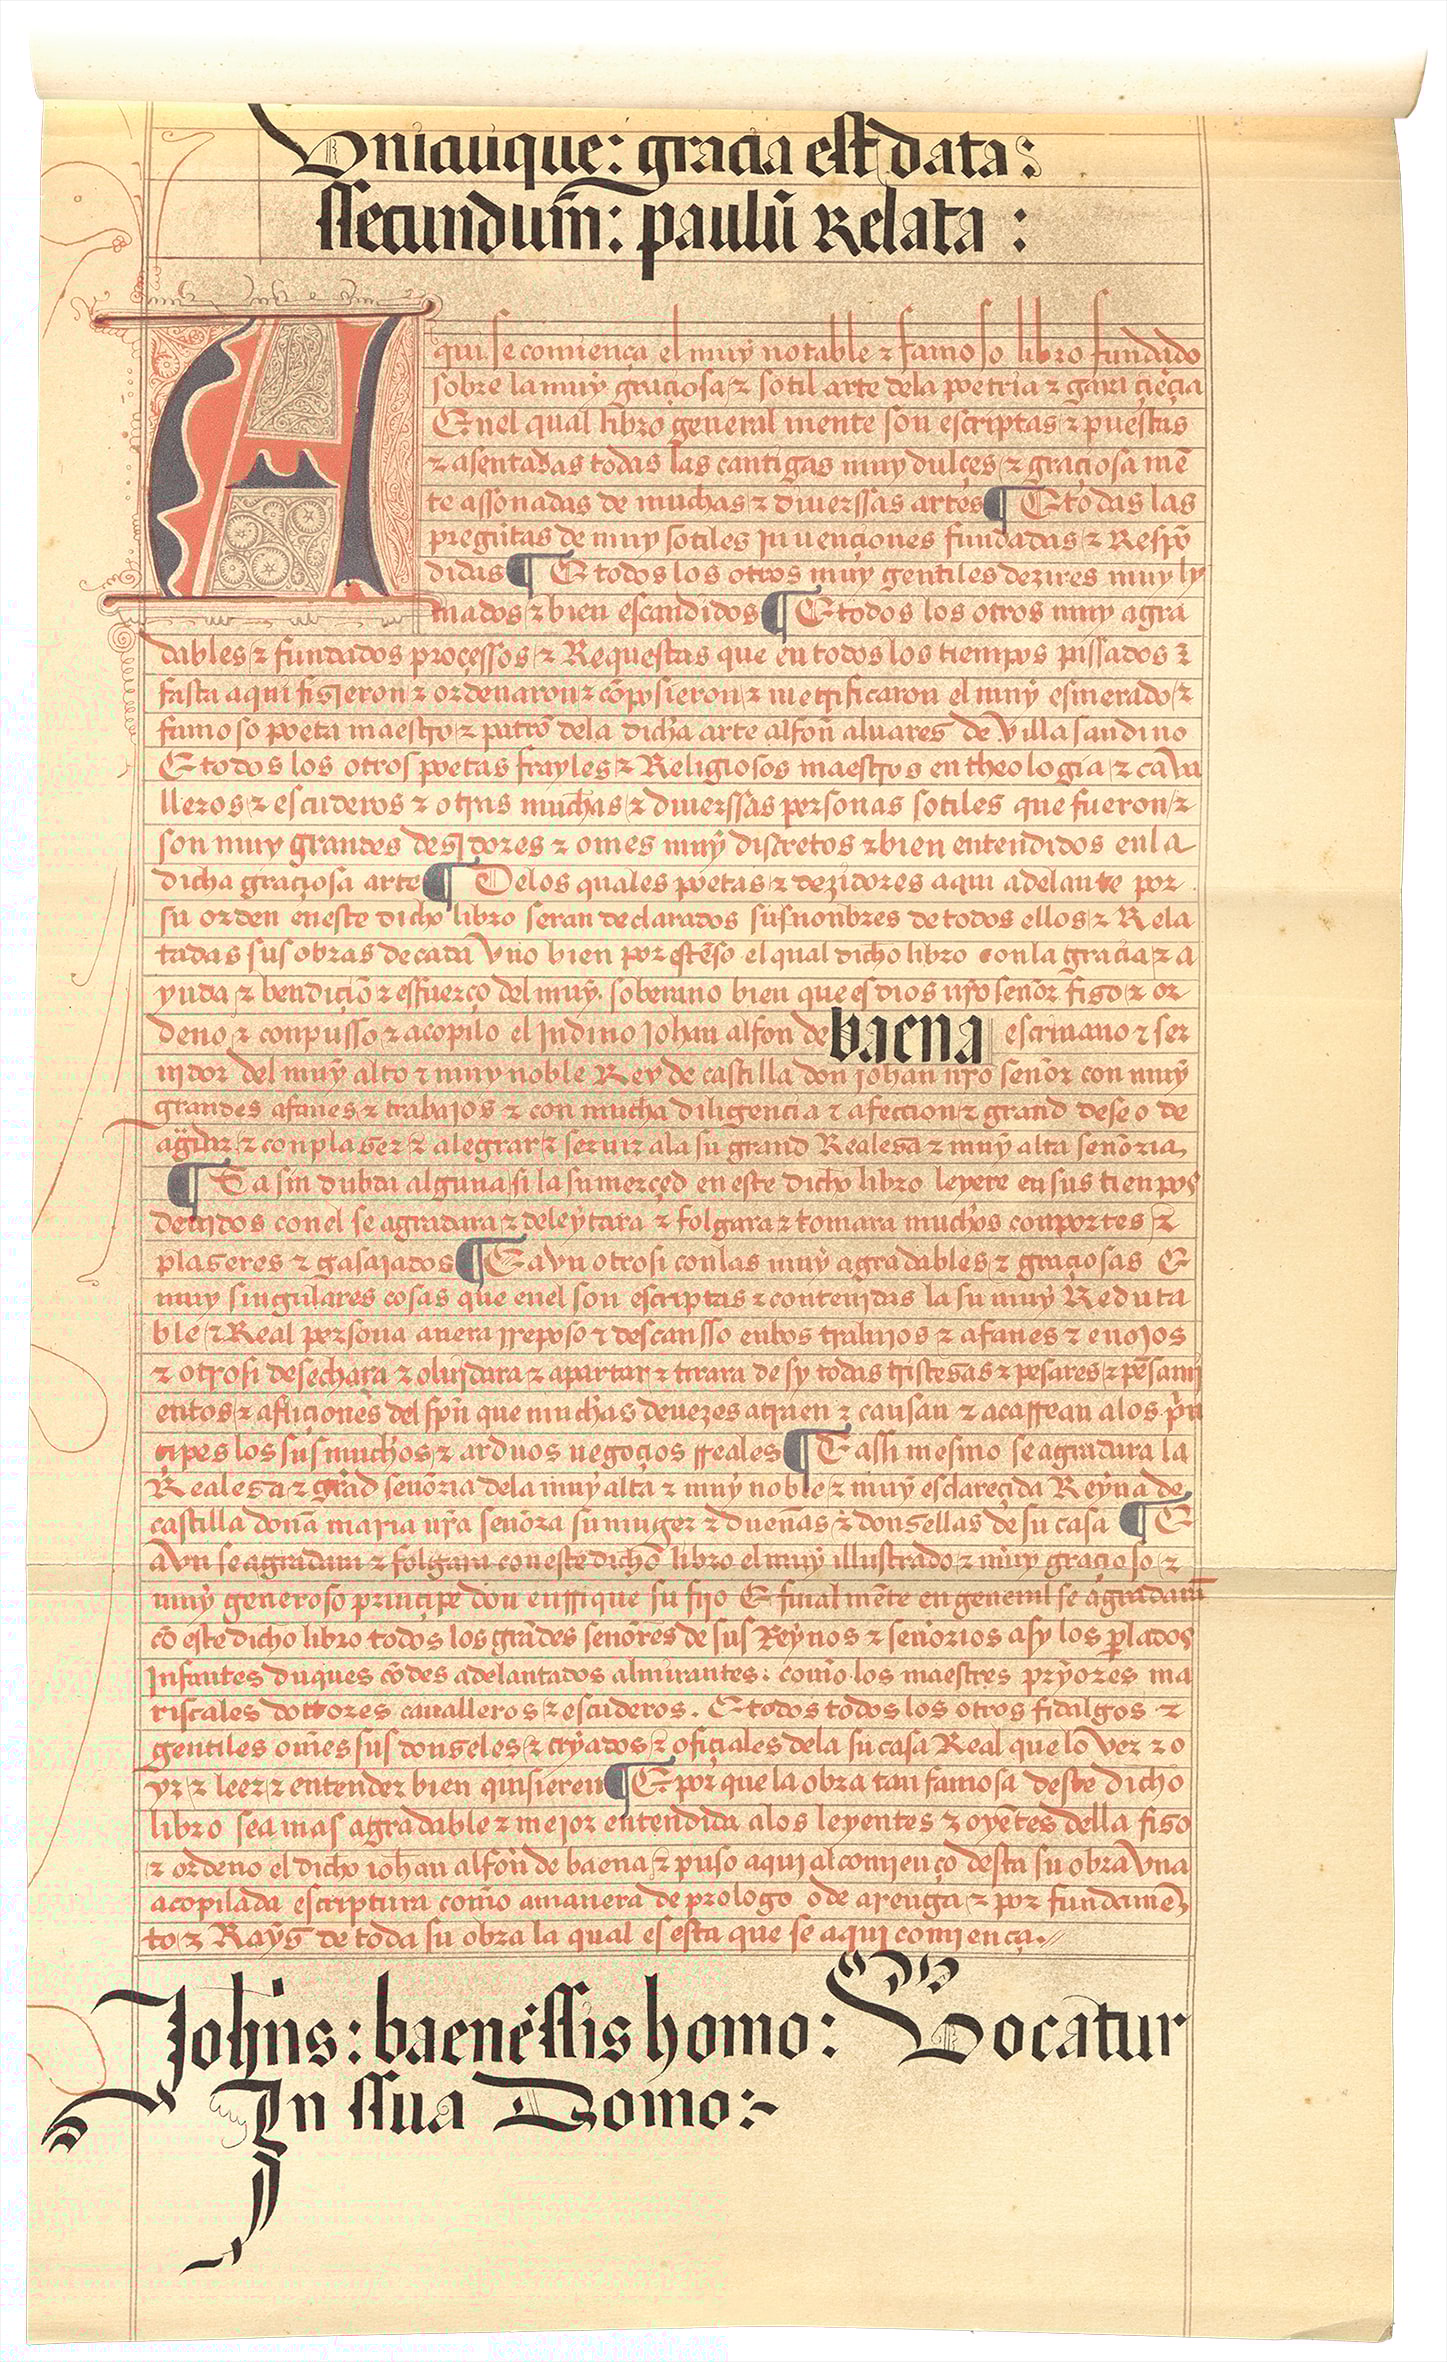 Vnicuique: gracia est data:
ssecundum̃: paulũ Relata :
Aqui se comiença el muy notable ⁊ famoso libro fundado
sobre la muy graçiosa ⁊ sotil arte dela poetria ⁊ gaya çiẽçia
En el qual libro general mente son escriptas ⁊ puestas
⁊ asentadas todas las cantigas muy dulçes ⁊ graçiosa mẽ
te assonadas de muchas ⁊ diuerssas artes ¶ E todas las
pregũtas de muy sotiles inuençiones fundadas ⁊ Respõ
didas ¶ E todos los otros muy gentiles dezires muy ly
mados ⁊ bien escandidos ¶ E todos los otros muy agra
dables ⁊ fundados proçessos ⁊ Requestas que en todos los tiempos passados ⁊
fasta aqui fisieron ⁊ ordenaron ⁊ cõposieron ⁊ metrificaron el muy esmerado ⁊
famoso poeta maestro ⁊ patrõ dela dicha arte alfoñ aluares de Villasandino
E todos los otros poetas frayles ⁊ Religiosos maestros en theologia ⁊ caua
lleros ⁊ escuderos ⁊ otras muchas ⁊ diuerssas personas sotiles que fueron ⁊
son muy grandes desidores ⁊ omes muy discretos ⁊ bien entendidos enla
dicha graçiosa arte ¶ Delos quales poetas ⁊ dezidores aqui adelante por
su orden en este dicho libro seran declarados sus nonbres de todos ellos ⁊ Rela
tadas sus obras de cada vno bien por estẽso el qual dicho libro con la gracia ⁊ a
yuda ⁊ bendiçiõ ⁊ esfuerço del muy soberano bien que es dios nr̃o señor fiso ⁊ or
deno ⁊ conpusso ⁊ acopilo el Indino Johan alfon de baena escriuano ⁊ ser
uidor del muy alto ⁊ muy noble Rey de castilla don johan nr̃o señor con muy
grandes afanes ⁊ trabajos ⁊ con mucha diligencia ⁊ afeccion ⁊ grand deseo de
⁊ conplaser ⁊ alegrar ⁊ seruir ala su grand Realesa ⁊ muy alta señoria
¶ Ca sin dubda alguna si la su merçed en este dicho libro leyere en sus tienpos
deuidos con el se agradara ⁊ deleytara ⁊ folgara ⁊ tomara muchos conportes ⁊
plaseres ⁊ gasajados ¶ E avn otrosi con las muy agradables ⁊ graçiosas E
muy singulares cosas que enel son escriptas ⁊ contenidas la su muy Reduta
ble ⁊ Real persona auera rreposo ⁊ descansso enlos trabajos ⁊ afanes ⁊ enojos
⁊ otrosi desechara ⁊ oluidara ⁊ apartar ⁊ tirara de sy todas tristesas ⁊ pesares ⁊ pẽsami
entos ⁊ afliciones del spũ que muchas devezes atraen ⁊ causan ⁊ acarrean alos prĩ
çipes los sus muchos ⁊ arduos negoçios rreales ¶ E assi mesmo se agradara la
Realesa ⁊ grãd señoria dela muy alta ⁊ muy noble ⁊ muy esclareçida Reyna de
castilla doña maria nr̃a señora su muger ⁊ dueñas ⁊ donsellas de su casa ¶ E
avn se agradara ⁊ folgara con este dicho libro el muy illustrado ⁊ muy graçioso ⁊
muy generoso prinçipe don enrrique su fijo E final mẽte en general se agradarã
cõ este dicho libro todos los grãdes señores de sus Reynos ⁊ señorios asy los perlados
Infantes duques cõdes adelantados almirantes: como los maestres pryores ma
riscales dottores caualleros ⁊ escuderos. E todos todos los otros fidalgos ⁊
gentiles omes sus donseles ⁊ cryados ⁊ ofiçiales dela su casa Real que lo ver ⁊ o
yr ⁊ leer ⁊ entender bien quisieren ¶ E por que la obra tan famosa deste dicho
libro sea mas agradable ⁊ mejor entendida alos leyentes ⁊ oyẽtes della fiso
⁊ ordeno el dicho iohan alfon de baena ⁊ puso aqui al comienço desta su obra vna
acopilada escriptura como amanera de prologo o de arenga ⁊ por fundamẽ
to ⁊ Rays de toda su obra la qual es esta que se aqui comiença.
Joh̃ns: baenẽssis homo: Vocatur
In ssua Domo: